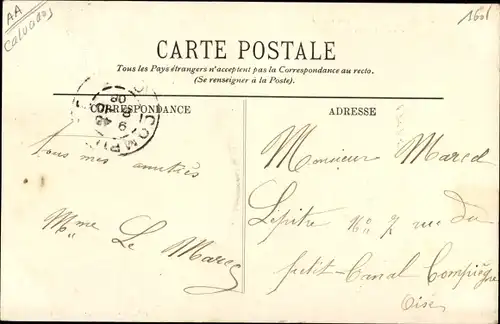 AA
Calvados
CARTE POSTALE
Tous les Pays étrangers n'acceptent pas la Correspondance au recto.
(Se renseigner à la Poste).
CORRESPONDANCE
ADRESSE
Tous mes amitiés
Mme Le Marec
Monsieur Marcel
Lepitre No 7 rue du
petit-Canal Compiègne
Oise